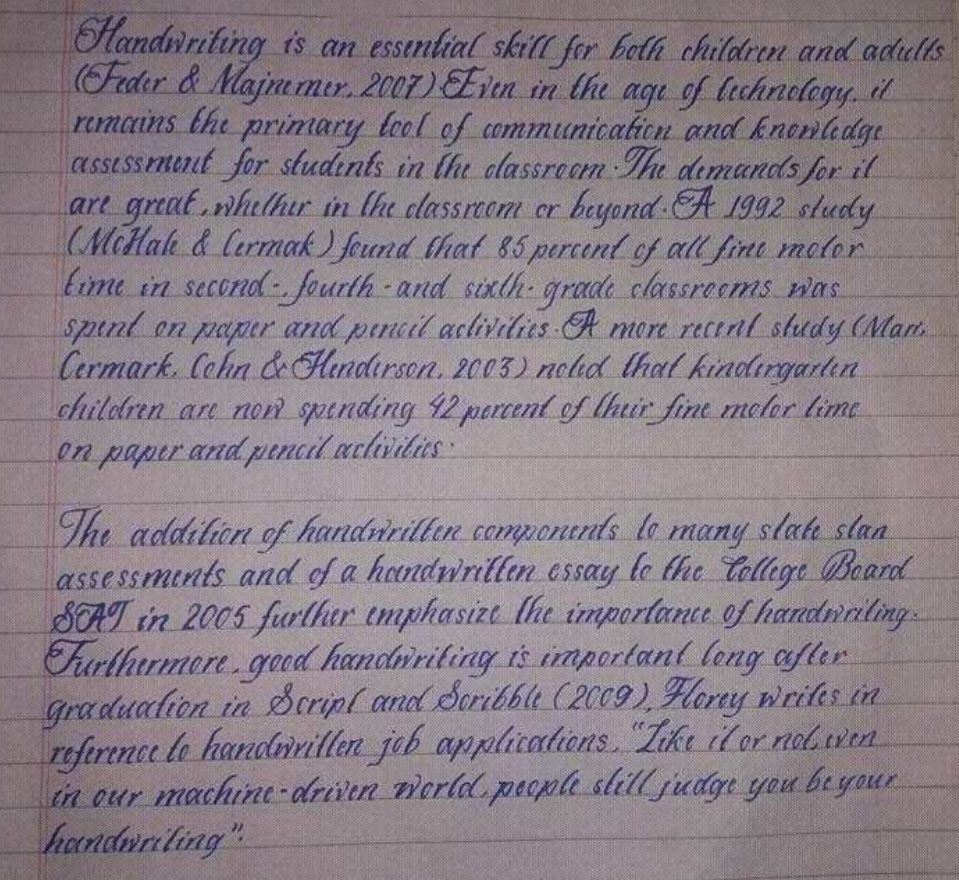 Handwriting is an essential skill for both children and adults
(Feder & Majnemer, 2007) Even in the age of technology, it
remains the primary tool of communication and knowledge
assessment for students in the classroom. The demands for it
are great, whether in the classroom or beyond. A 1992 study
(McHale & Cermak) found that 85 percent of all fine motor
time in second-, fourth-and sixth-grade classrooms was
spent on paper and pencil activities. A more recent study (Marr,
Cermark, Cohn & Henderson, 2003) noted that kindergarten
children are now spending 42 percent of their fine motor time
on paper and pencil activities.
The addition of handwritten components to many state stan
assessments and of a handwritten essay to the College Board
SAT in 2005 further emphasize the importance of handwriting.
Furthermore, good handwriting is important long after
graduation in Script and Scribble (2009), Florey writes in
reference to handwritten job applications, "Like it or not, even
in our machine-driven world, people still judge you be your
handwriting".